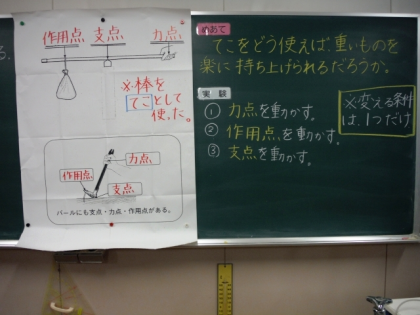 作用点 支点 力点
※棒を
てことして
使った。
力点
作用点
支点
バールにも支点・力点・作用点がある。
めあて
てこをどう使えば、重いものを
楽に持ち上げられるだろうか。
実験
① 力点を動かす。
② 作用点を動かす。
③ 支点を動かす。
※変える条件
は、1つだけ